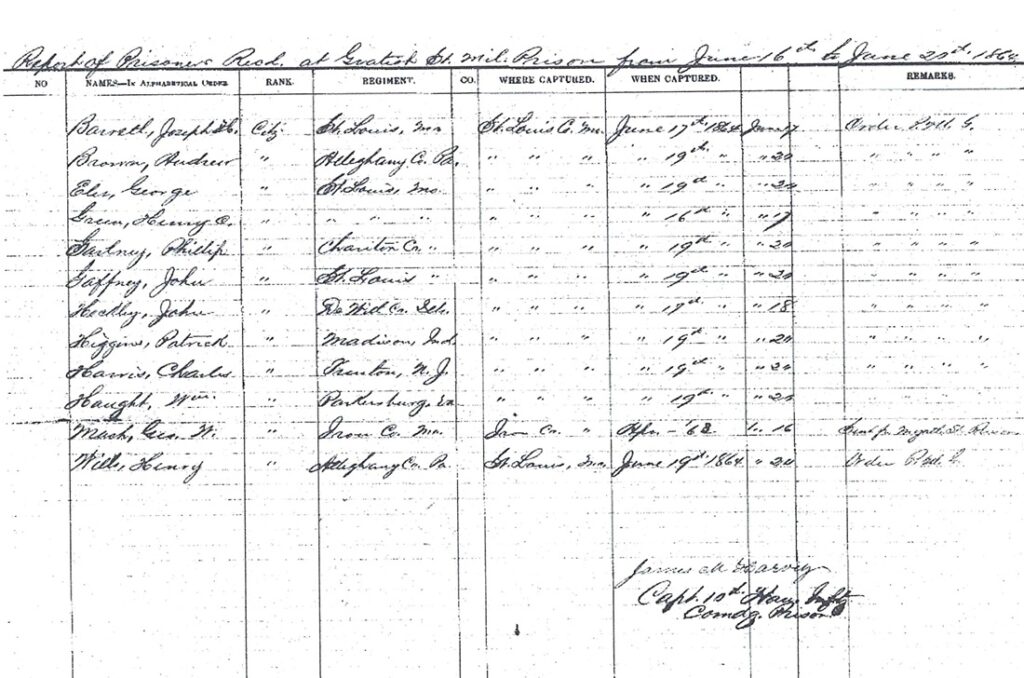 Report of Prisoners Recd. at Gratiot St. Mil. Prison from June 16th to June 1864
NO NAMES—IN ALPHABETICAL ORDER. RANK. REGIMENT. CO. WHERE CAPTURED. WHEN CAPTURED. REMARKS.
Barrett, Joseph Citz St. Louis, Mo St. Louis Co. Mo. June 17th 1864 June 17 Order
Brown, Andrew " Alleghany Co. Pa. " " " " 19th " " 20 " " " "
George " St. Louis, Mo. " " " " 19th " " 20 " " " "
Green, Henry C. " " " " " " " " 16th " " 17 " " " "
Phillip " Chariton Co. " " " " " 19th " " 20 " " " "
Gaffney, John " St. Louis " " " " " 19th " " 20 " " " "
Heckley, John " De Wid Co. Ills. " " " " 17th " " 18 " " " "
Higgins, Patrick " Madison, Ind. " " " " 19th " " 20 " " " "
Harris, Charles " Trenton, N. J. " " " " 19th " " 20 " " " "
Haught, Wm. " Parkersburg, Va " " " " 19th " " 20
Mash, Geo. W. " Iron Co. Mo. Iron Co. " 16 Prison
Henry " Alleghany Co. Pa. St. Louis, Mo. June 19th 1864 " 20 Order
James M Harvey
Capt. 10th Infty
Comdg. Prison